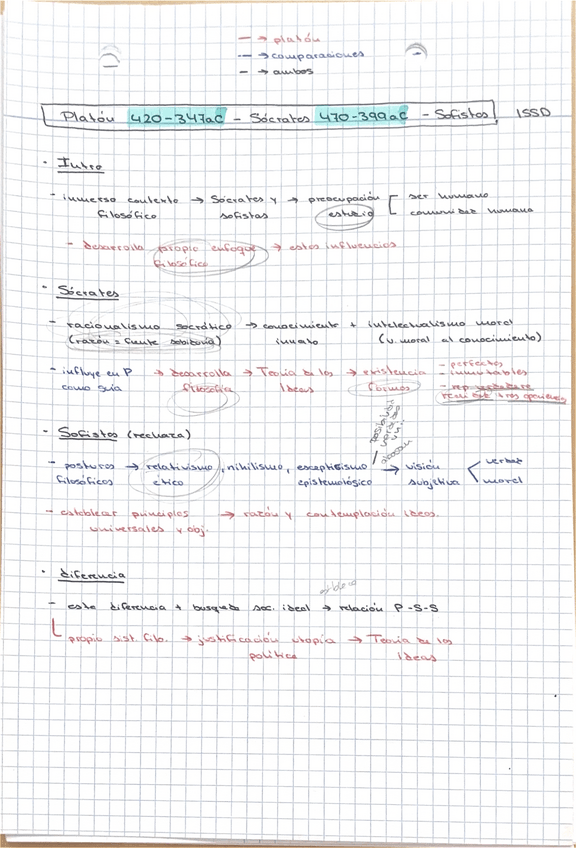 — → platón
— → comparaciones
— → ambos
Platón 420-347aC - Sócrates 470-399aC - Sofistas ISSD
· Intro
- inmerso contexto → Sócrates y → preocupación [ ser humano
filosófico sofistas estudio comunidad humana
- desarrolla propio enfoque → estas influencias
filosófico
· Sócrates
- racionalismo socrático → conocimiento + intelectualismo moral
(razón = fuente sabiduría) innato (v. moral al conocimiento)
- influye en P → desarrolla → Teoría de los → existencia - perfectas
como guía filosofía Ideas formas - inmutables
· Sofistas (rechaza)
- posturas → relativismo, nihilismo, escepticismo → visión verdad
filosóficas ético epistemológico subjetiva moral
- establecer principios → razón y contemplación Ideas.
universales y obj.
· diferencia
- esta diferencia + busqueda soc. ideal → relación P-S-S
propio sist. filo. → justificación utopía → Teoría de las
política Ideas